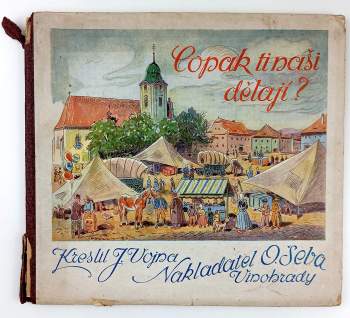 Copak ti naši
dělají?
Kreslil J. Vojna
Nakladatel O. Šeba
Vinohrady